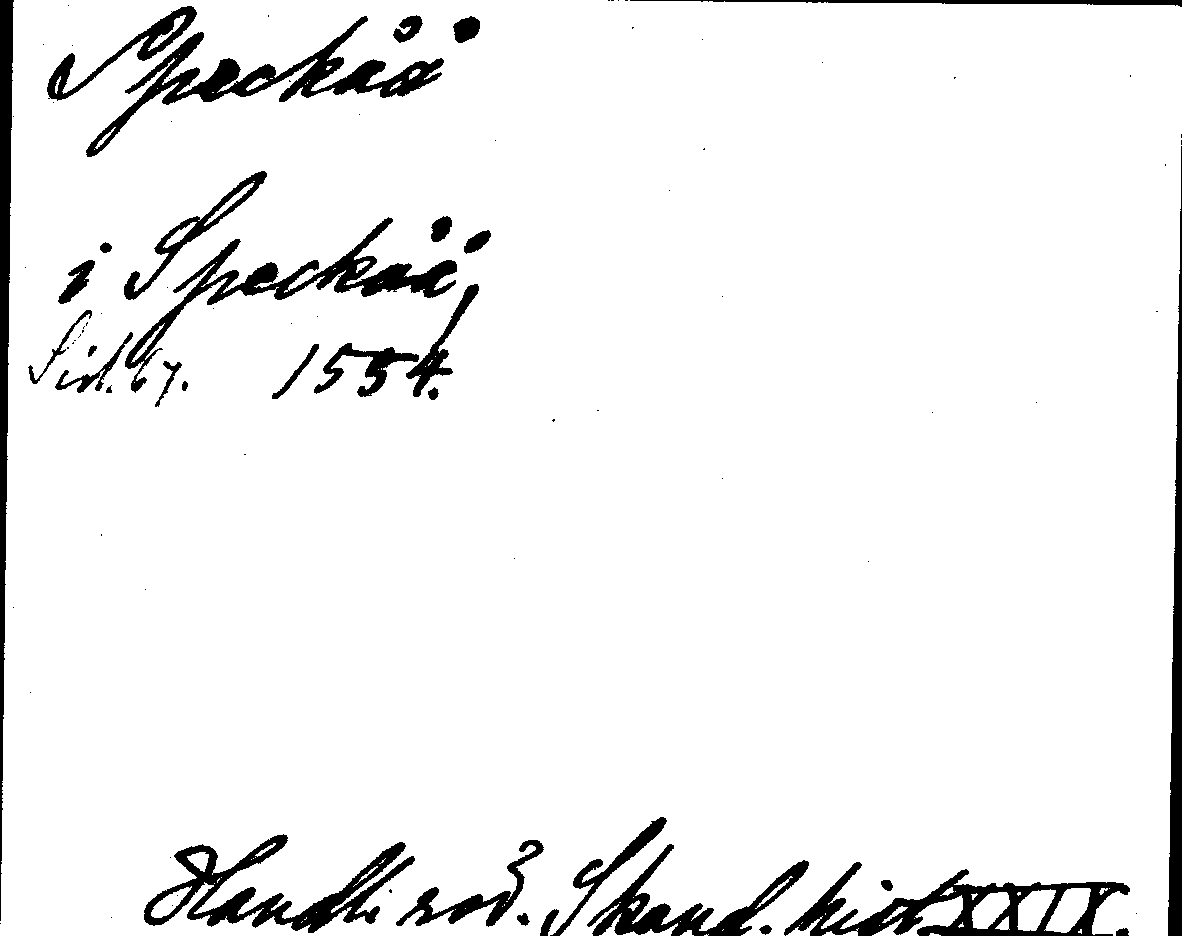 Speckåå
i Speckåå,
Sid. 67. 1554.
Handl. rör. Skand. hist. XXIX.